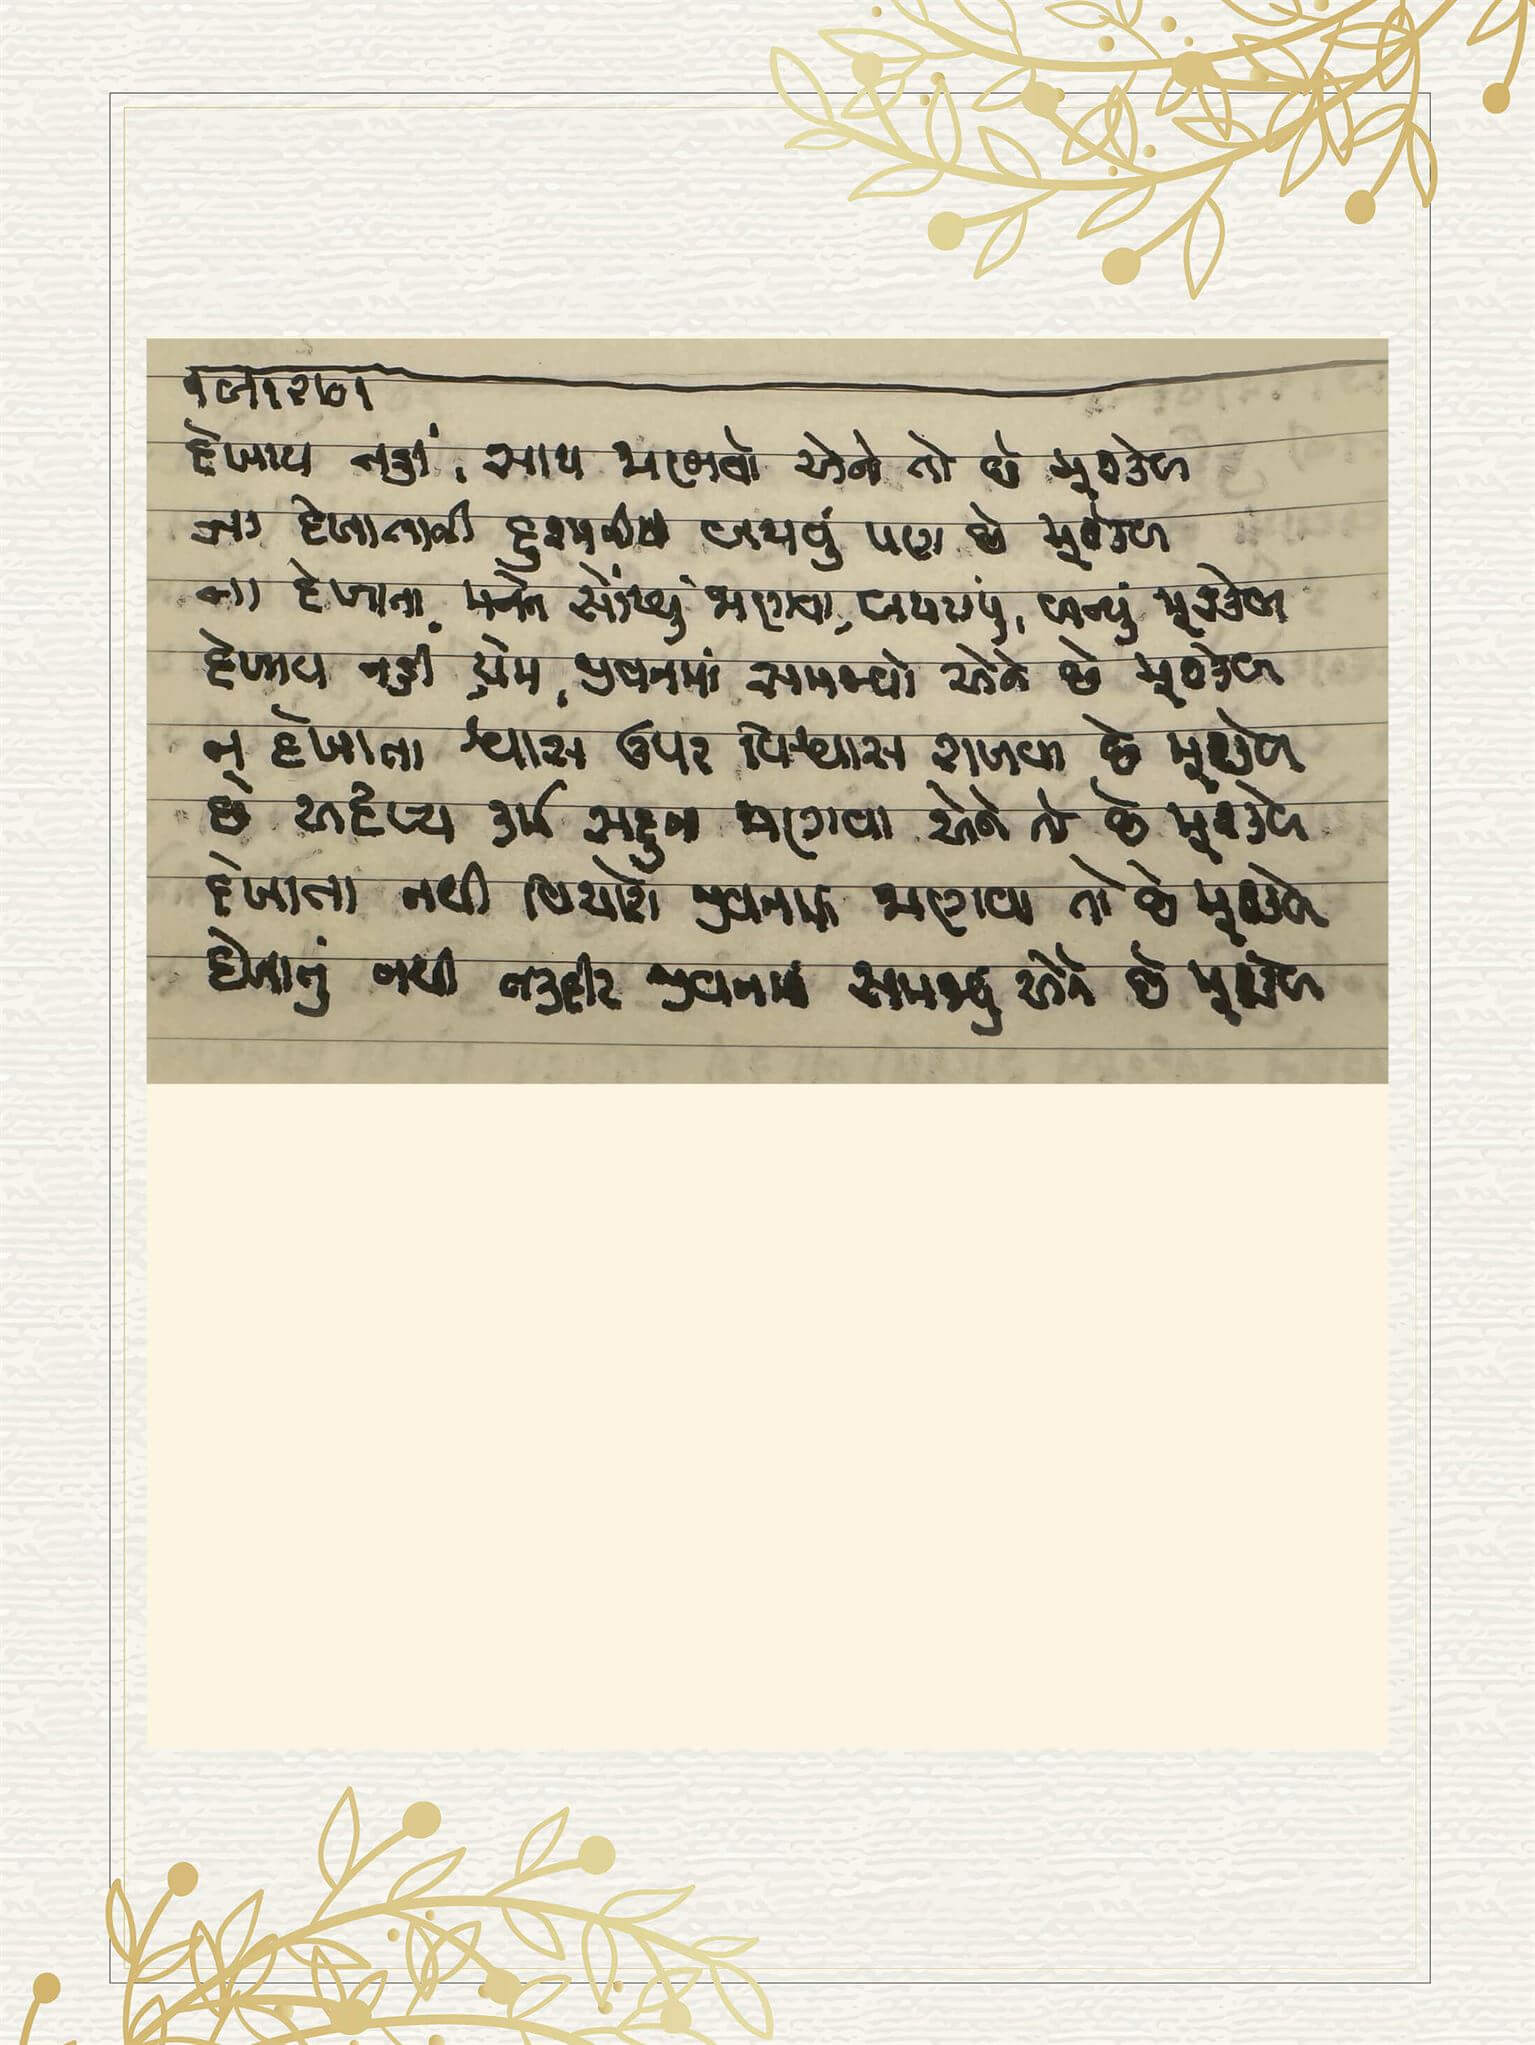 દેખાય નહીં, સાથ સમજવો એને તો છે મુશ્કેલ
ના દેખાતાની દુશ્મની બચવું પણ છે મુશ્કેલ
ના દેખાતા મનને સોંપ્યું જાણવા, બન્યું મુશ્કેલ
દેખાય નહીં પ્રેમ, જીવનમાં સમજવો એને છે મુશ્કેલ
ન દેખાતા શ્વાસ ઉપર વિશ્વાસ રાખવા છે મુશ્કેલ
છે અદૃશ્ય જાણવા એને તો છે મુશ્કેલ
દેખાતા નથી વિચારો જીવનમાં જાણવા તો છે મુશ્કેલ
દેખાતું નથી તકદીર જીવનમાં સમજવું એને છે મુશ્કેલ